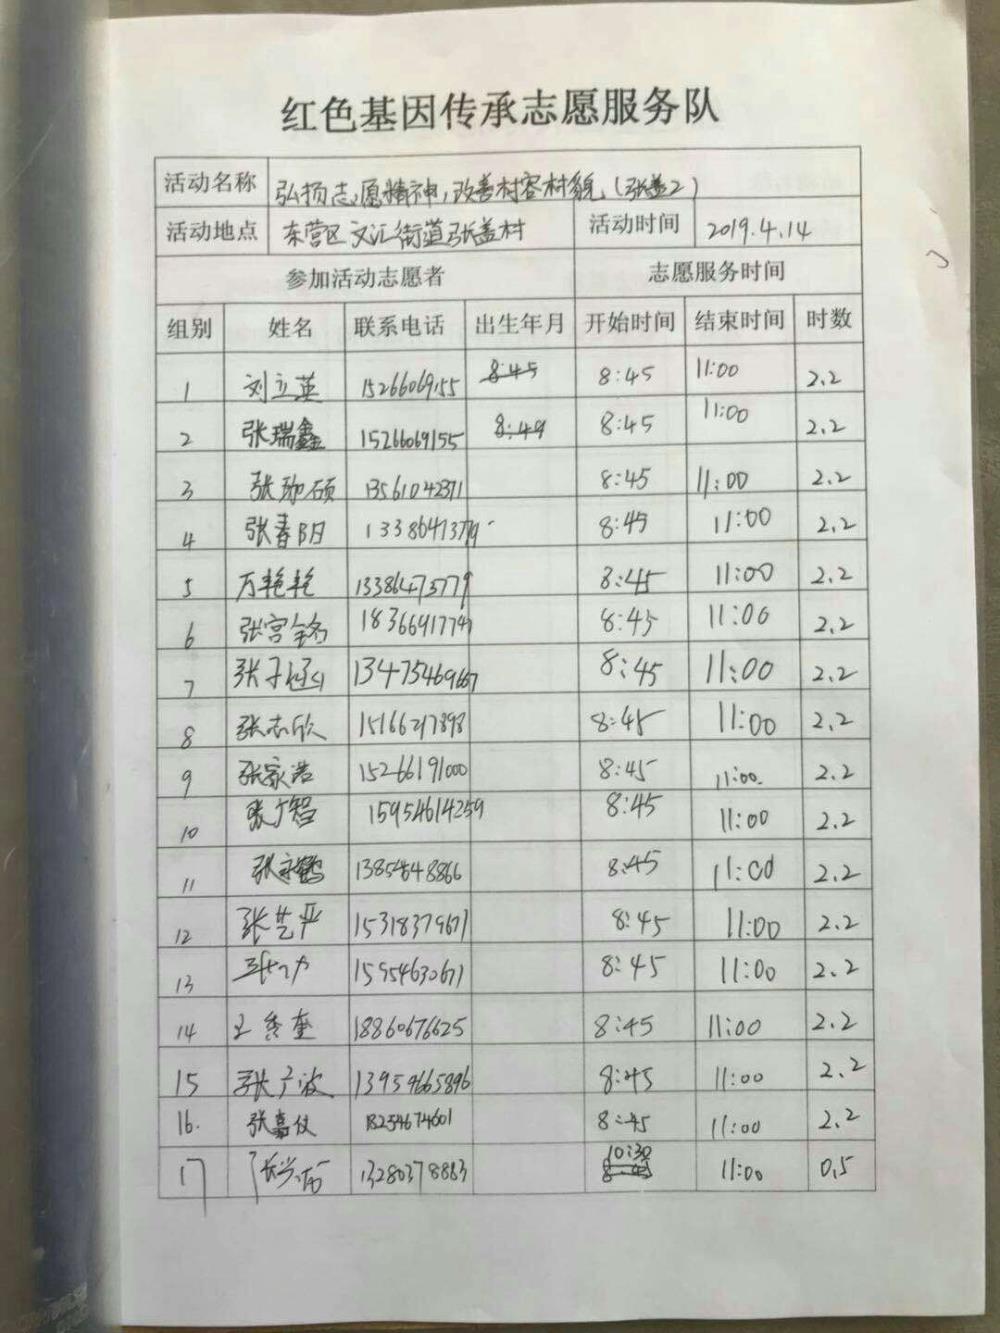 红色基因传承志愿服务队
活动名称 弘扬志愿精神,改善村容村貌(张盖2)
活动地点 东营区文汇街道张盖村 活动时间 2019.4.14
参加活动志愿者 志愿服务时间
组别 姓名 联系电话 出生年月 开始时间 结束时间 时数
1 刘立英 15266069155 8:45 8:45 11:00 2.2
2 张瑞鑫 15266069155 8:49 8:45 11:00 2.2
3 张珈硕 13561042371 8:45 11:00 2.2
4 张春阳 8:45 11:00 2.2
5 万艳艳 13386475779 8:45 11:00 2.2
6 张宫铭 8:45 11:00 2.2
7 张子涵 13475469667 8:45 11:00 2.2
8 张志欣 15166217898 8:45 11:00 2.2
9 张家浩 15266191000 8:45 11:00 2.2
10 张广智 15954614259 8:45 11:00 2.2
11 张永鹤 13854648866 8:45 11:00 2.2
12 张艺严 15318379671 8:45 11:00 2.2
13 15954630671 8:45 11:00 2.2
14 王秀奎 18860676625 8:45 11:00 2.2
15 张广波 13959665896 8:45 11:00 2.2
16. 张嘉仪 18254674601 8:45 11:00 2.2
17 13280378883 10:30 11:00 0.5